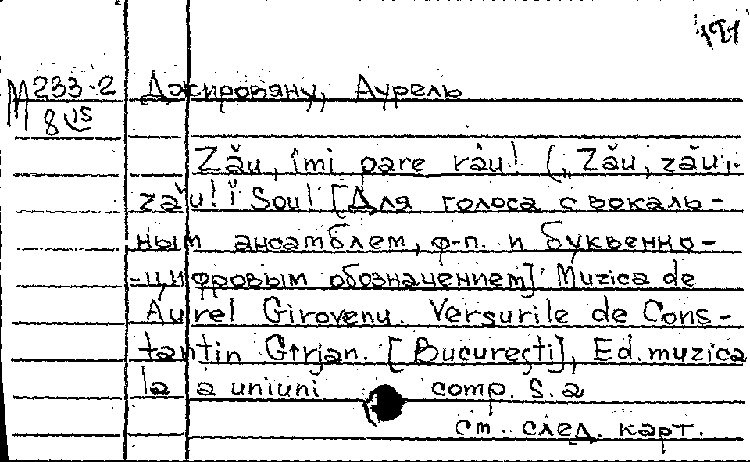 М 233-2 Джировяну, Аурель
8
Zău, îmi pare rău! („Zău, zău,
zău! Soul [Для голоса с вокаль-
ным ансамблем, ф-п. и буквенно-
-цифровым обозначением] Muzica de
Aurel Giroveanu. Versurile de Cons-
tantin Cîrjan. [Bucureşti], Ed. muzica
la a uniuni comp. S. a
см. след. карт.